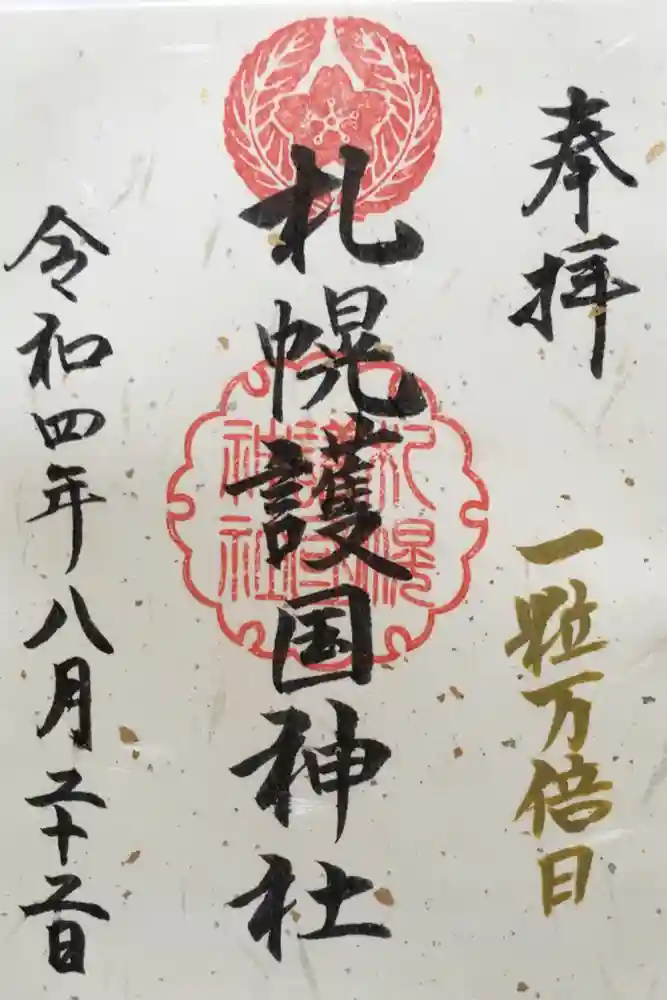 奉拝
一粒万倍日
札幌護国神社
札幌
護国
神社
令和四年八月二十二日